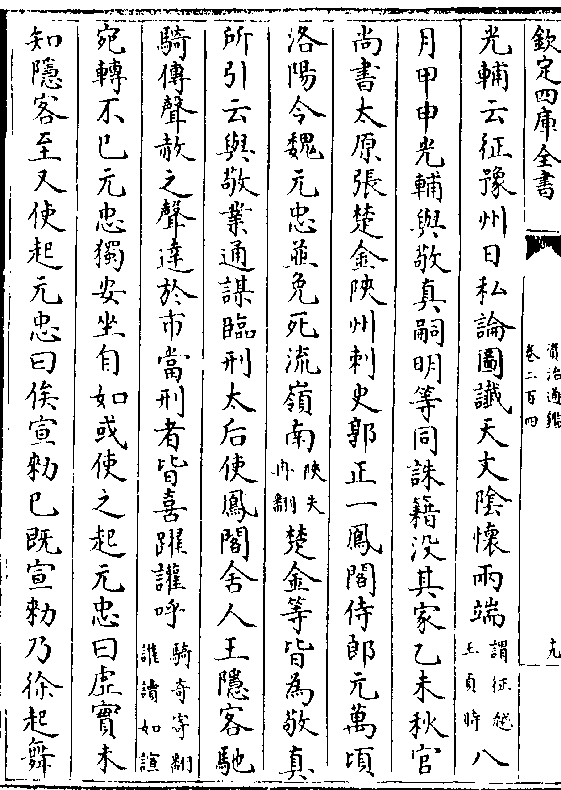 欽定四庫全書
資治通鑑
卷二百四
九
光輔云征豫州日私論圖讖天文陰懷兩端謂征越王貞時八
月甲申光輔與敬真嗣明等同誅籍没其家乙未秋官
尚書太原張楚金陜州刺史郭正一鳳閣侍郎元萬頃
洛陽令魏元忠並免死流嶺南陜失冉翻楚金等皆為敬真
所引云與敬業通謀臨刑太后使鳳閣舍人王隱客馳
騎傳聲赦之聲達於市當刑者皆喜躍讙呼騎奇寄翻讙讀如諠
宛轉不已元忠獨安坐自如或使之起元忠曰虛實未
知隱客至又使起元忠曰俟宣勅已既宣勅乃徐起舞